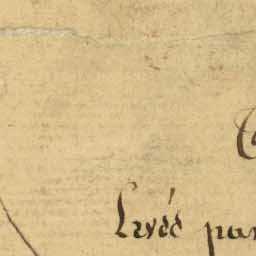 Levéé par